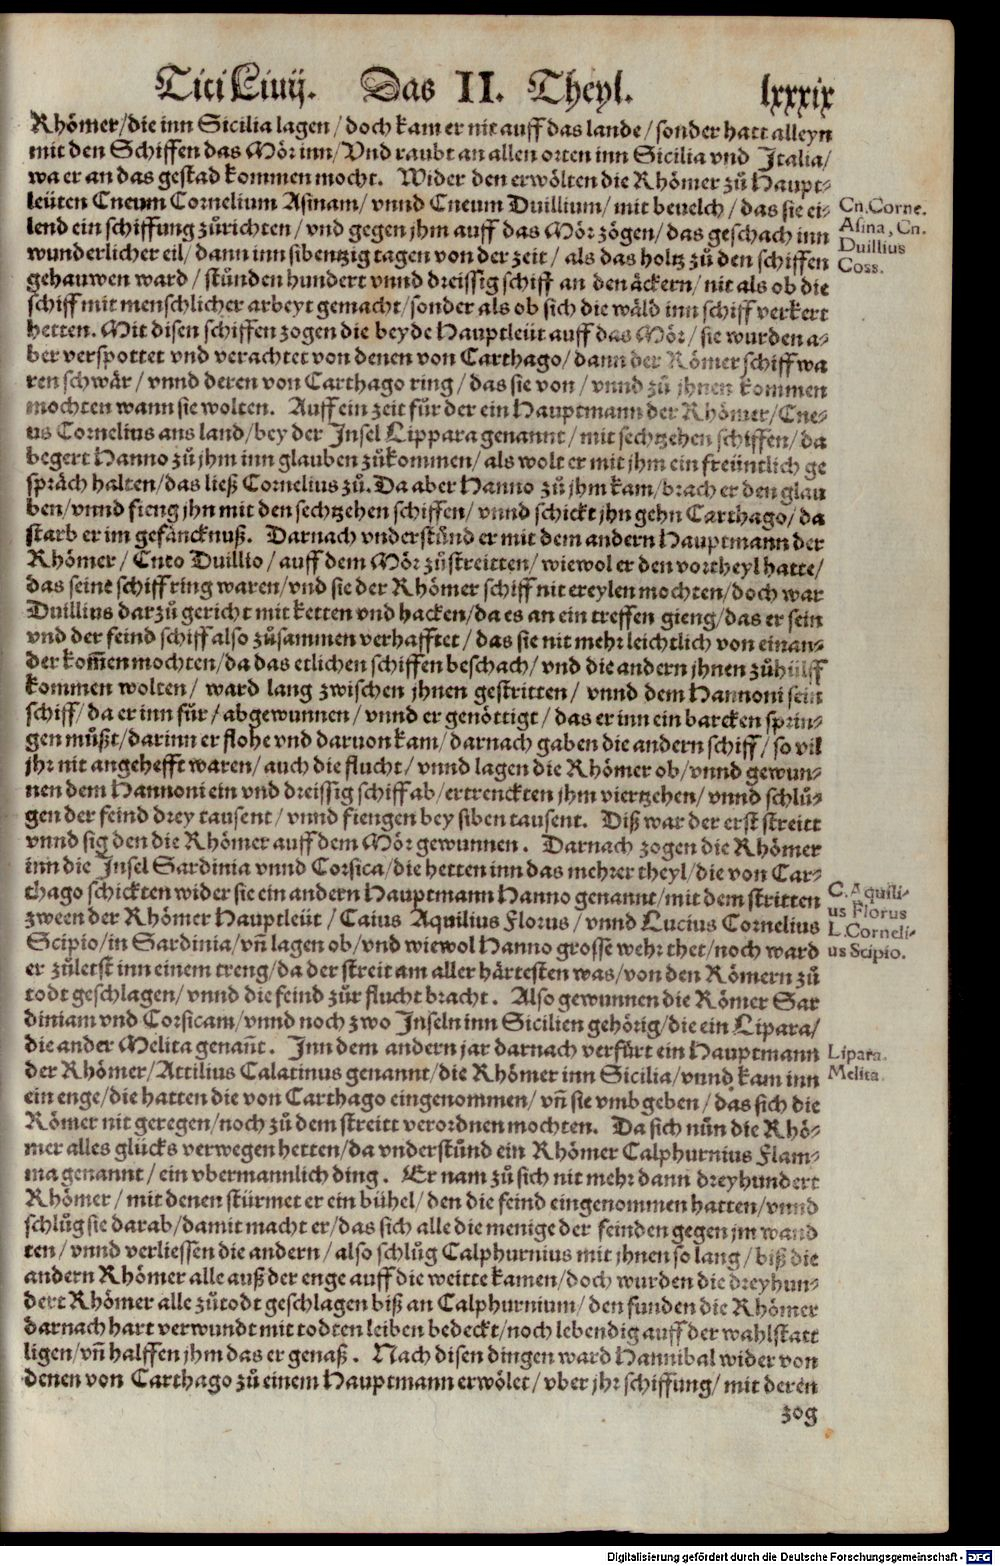 Titi Liuij. Das II. Theyl. lxxxix
Rhömer/die inn Sicilia lagen/doch kam er nit auff das lande/sonder hatt alleyn
mit den Schiffen das Mör inn/Vnd raubt an allen orten inn Sicilia vnd Italia/
wa er an das gestad kommen mocht. Wider den erwölten die Rhömer zů Haupt-
leüten Cneum Cornelium Asinam/vnnd Cneum Duillium/mit beuelch/das sie ei-
lend ein schiffung zůrichten/vnd gegen jhm auff das Mör zögen/das geschach inn
wunderlicher eil/dann inn sibentzig tagen von der zeit/als das holtz zů den schiffen
gehauwen ward/stůnden hundert vnnd dreissig schiff an den äckern/nit als ob die
schiff mit menschlicher arbeyt gemacht/sonder als ob sich die wäld inn schiff verkert
hetten. Mit disen schiffen zogen die beyde Hauptleüt auff das Mör/sie wurden a-
ber verspottet vnd verachtet von denen von Carthago/dann der Römer schiff wa
ren schwär/vnnd deren von Carthago ring/das sie von/vnnd zů jhnen kommen
mochten wann sie wolten. Auff ein zeit für der ein Hauptmann der Rhömer/Cne-
us Cornelius ans land/bey der Insel Lippara genannt/mit sechtzehen schiffen/da
begert Hanno zů jhm inn glauben zůkommen/als wolt er mit jhm ein freüntlich ge
spräch halten/das ließ Cornelius zů. Da aber Hanno zů jhm kam/brach er den glau
ben/vnnd fieng jhn mit den sechtzehen schiffen/vnnd schickt jhn gehn Carthago/da
starb er im gefäncknuß. Darnach vnderstůnd er mit dem andern Hauptmann der
Rhömer/Cneo Duillio/auff dem Mör zůstreitten/wiewol er den vortheyl hatte/
das seine schiff ring waren/vnd sie der Rhömer schiff nit ereylen mochten/doch war
Duillius darzů gericht mit ketten vnd hacken/da es an ein treffen gieng/das er sein
vnd der feind schiff also zůsammen verhafftet/das sie nit mehr leichtlich von einan-
der kom̃en mochten/da das etlichen schiffen beschach/vnd die andern jhnen zůhülff
kommen wolten/ward lang zwischen jhnen gestritten/vnnd dem Hannoni sein
schiff/da er inn für/abgewunnen/vnnd er genöttigt/das er inn ein barcken sprin-
gen můßt/darinn er flohe vnd daruon kam/darnach gaben die andern schiff/so vil
jhr nit angehefft waren/auch die flucht/vnnd lagen die Rhömer ob/vnnd gewun-
nen dem Hannoni ein vnd dreissig schiff ab/ertrenckten jhm viertzehen/vnnd schlů-
gen der feind drey tausent/vnnd fiengen bey siben tausent. Diß war der erst streitt
vnnd sig den die Rhömer auff dem Mör gewunnen. Darnach zogen die Rhömer
inn die Insel Sardinia vnnd Corsica/die hetten inn das mehrer theyl/die von Car-
thago schickten wider sie ein andern Hauptmann Hanno genannt/mit dem stritten
zween der Rhömer Hauptleüt/Caius Aquilius Florus/vnnd Lucius Cornelius
Scipio/in Sardinia/vñ lagen ob/vnd wiewol Hanno grosse wehr thet/noch ward
er zůletst inn einem treng/da der streit am aller härtesten was/von den Römern zů
todt geschlagen/vnnd die feind zůr flucht bracht. Also gewunnen die Römer Sar
diniam vnd Corsicam/vnnd noch zwo Inseln inn Sicilien gehörig/die ein Lipara/
die ander Melita genañt. Inn dem andern jar darnach verfürt ein Hauptmann
der Rhömer/Attilius Calatinus genannt/die Rhömer inn Sicilia/vnnd kam inn
ein enge/die hatten die von Carthago eingenommen/vñ sie vmbgeben/das sich die
Römer nit geregen/noch zů dem streitt verordnen mochten. Da sich nůn die Rhö-
mer alles glücks verwegen hetten/da vnderstůnd ein Rhömer Calphurnius Flam-
ma genannt/ein vbermannlich ding. Er nam zů sich nit mehr dann dreyhundert
Rhömer/mit denen stürmet er ein bühel/den die feind eingenommen hatten/vnnd
schlůg sie darab/damit macht er/das sich alle die menige der feinden gegen jm wand
ten/vnnd verliessen die andern/also schlůg Calphurnius mit jhnen so lang/biß die
andern Rhömer alle auß der enge auff die weitte kamen/doch wurden die dreyhun-
dert Rhömer alle zůtodt geschlagen biß an Calphurnium/den funden die Rhömer
darnach hart verwundt mit todten leiben bedeckt/noch lebendig auff der wahlstatt
ligen/vñ halffen jhm das er genaß. Nach disen dingen ward Hannibal wider von
denen von Carthago zů einem Hauptmann erwölet/vber jhr schiffung/mit deren
zog
Cn. Corne.
Asina, Cn.
Duillius
Coss.
C. Aquili-
us Florus
L. Corneli-
us Scipio.
Lipara.
Melita.
Digitalisierung gefördert durch die Deutsche Forschungsgemeinschaft - DFG